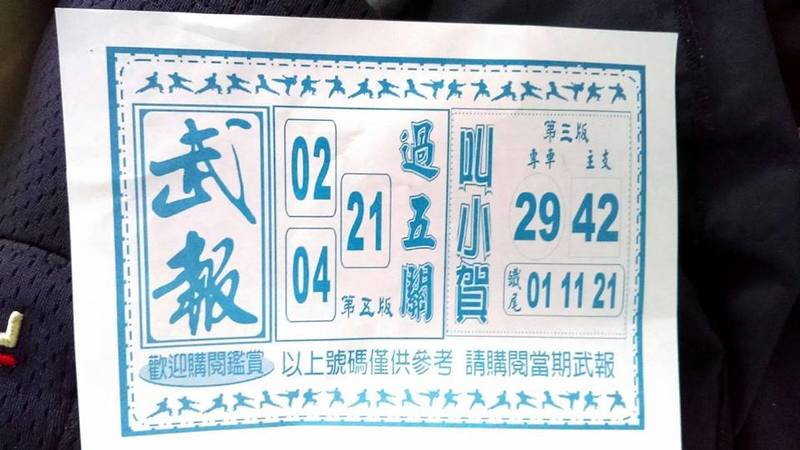 武報
02
04
21
第五版
過五關
叫小賀
第三版
專車 主支
29 42
鐵尾 01 11 21
歡迎購閱鑑賞 以上號碼僅供參考 請購閱當期武報